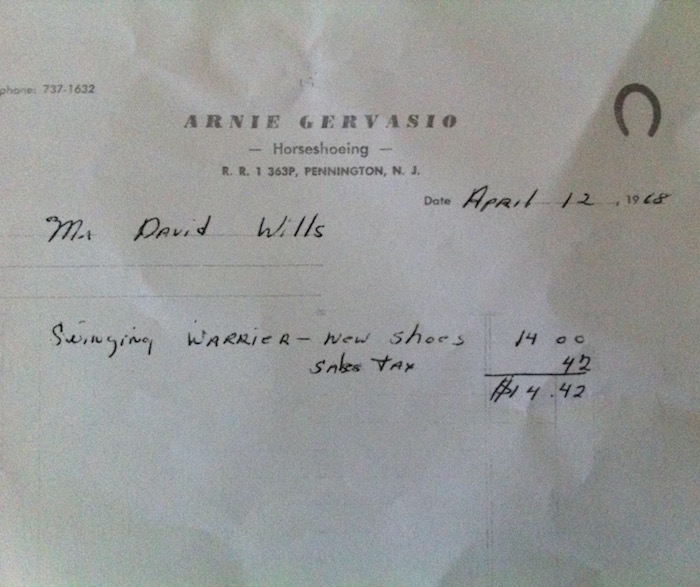 phone: 737-1632
ARNIE GERVASIO
— Horseshoeing —
R. R. 1 363P, PENNINGTON, N. J.
Date April 12, 1968
Mr David Wills
Swinging WARRIER - New shoes 14 00
Sales TAX 42
$14.42